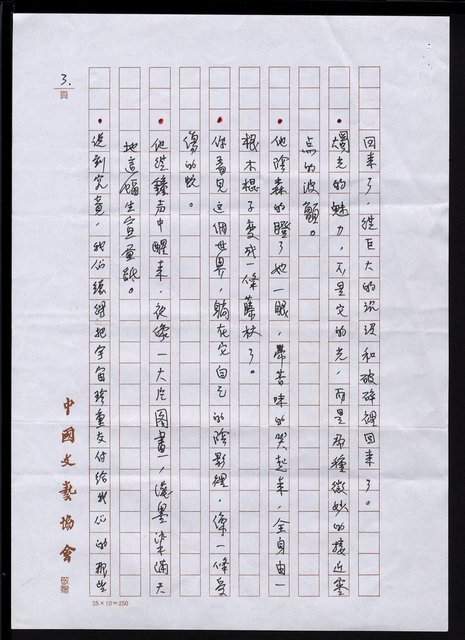 回來了，從巨大的沉沒和破碎裡回來了。
燭光的魅力，不是它的光，而是那種微妙的接近零
点的波顫。
他陰森的瞪了她一眼，帶苦味的哭起來，全身由一
根木棍子變成一條藤杖了。
你看見這個世界，躺在它自己的陰影裡，像一條受
傷的蛇。
他從鐘声中醒來，夜像一大片圖畫，濃墨染滿天
地這幅生宣畫紙。
說到究竟，我們總得把宇宙珍重交付給我們的那些
3.
頁
中國文藝協會
敬贈
25×10=250